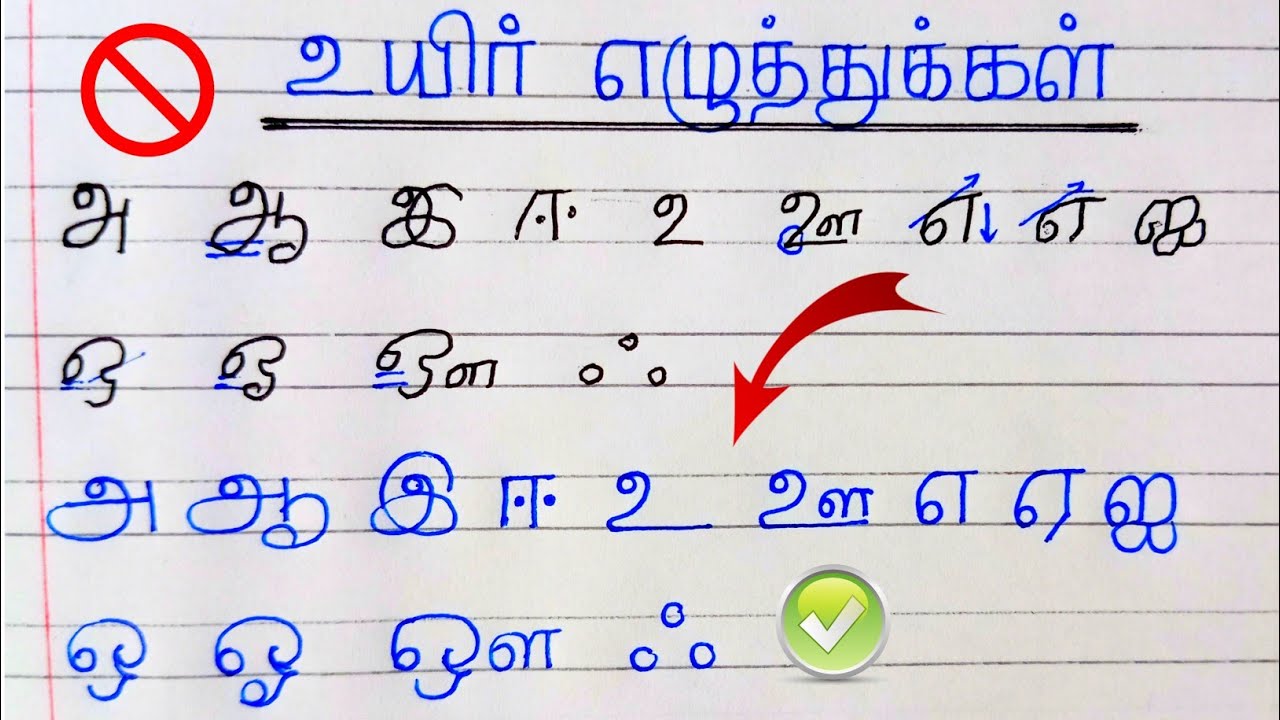 உயிர் எழுத்துக்கள்
அ ஆ இ ஈ உ ஊ எ ஏ ஐ
ஒ ஓ ஔ ஃ
அ ஆ இ ஈ உ ஊ எ ஏ ஐ
ஒ ஓ ஔ ஃ